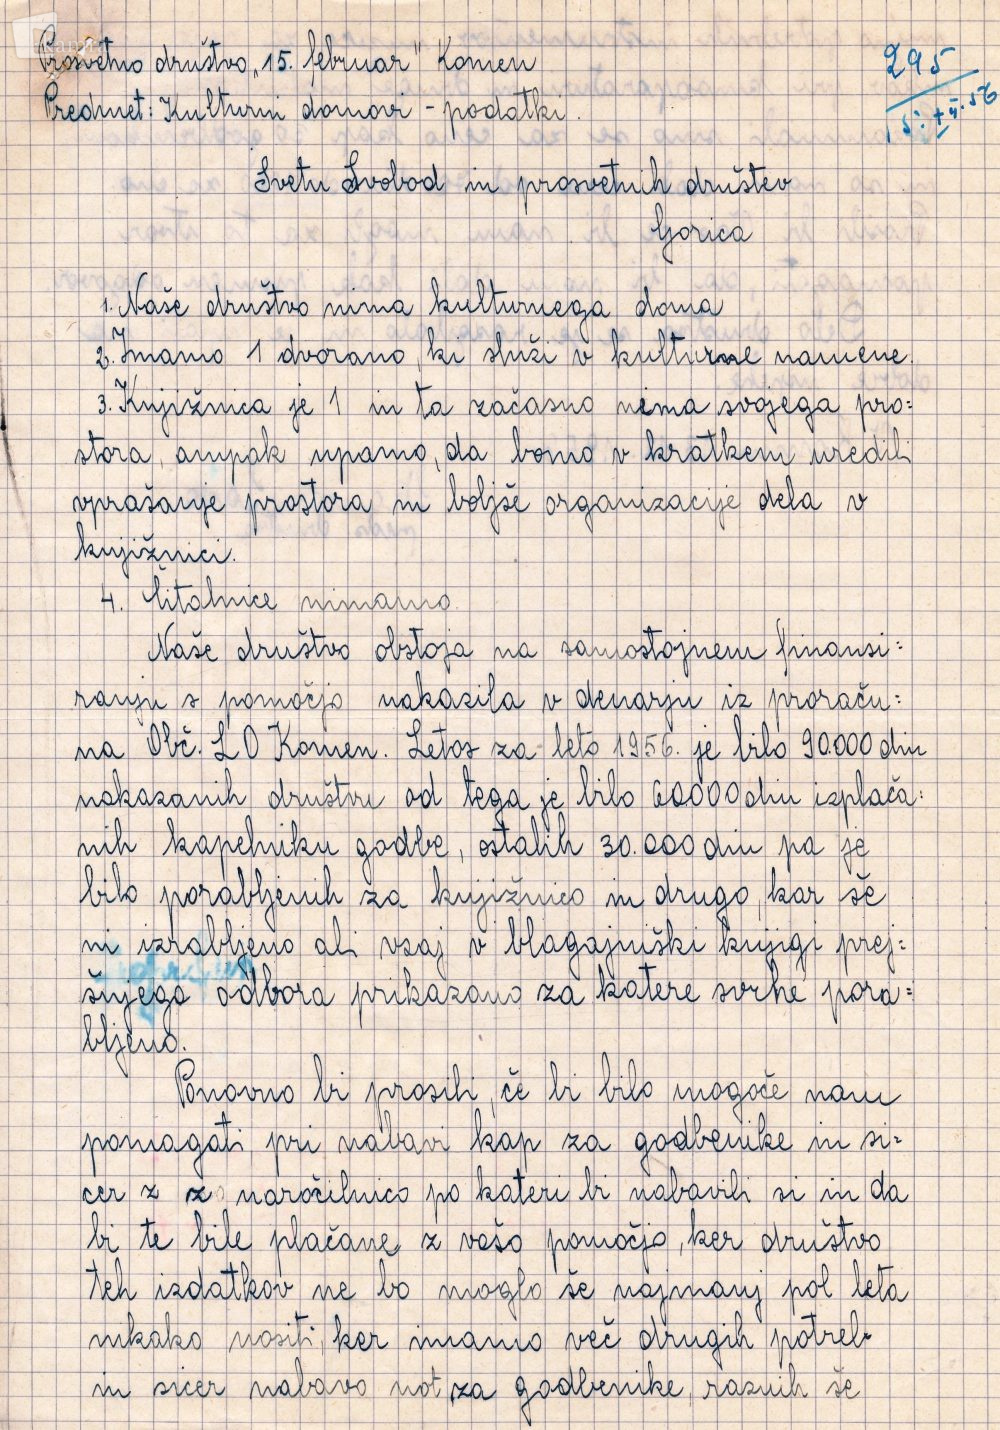 Prosvetno društvo „15. februar" Komen
Predmet: Kulturni domovi - podatki.
295
Svetu Svobod in prosvetnih društev
Gorica
1. Naše društvo nima kulturnega doma
2. Imamo 1 dvorano, ki služi v kulturne namene.
3. Knjižnica je 1 in ta začasno nima svojega pro=
stora, ampak upamo, da bomo v kratkem uredili
vprašanje prostora in boljše organizacije dela v
knjižnici.
4. Čitalnice nimamo.
Naše društvo obstoja na samostojnem finansi=
ranju s pomočjo nakazila v denarju iz proraču=
na Obč. L O Komen. Letos za leto 1956. je bilo 90.000 din
nakazanih društvu od tega je bilo 60000 din izplača=
nih kapelniku godbe, ostalih 30.000 din pa je
bilo porabljenih za knjižnico in drugo, kar še
ni izrabljeno ali vsaj v blagajniški knjigi prej=
šnjega odbora prikazano za katere svrhe pora=
bljeno.
Ponovno bi prosili, če bi bilo mogoče nam
pomagati pri nabavi kap za godbenike in si=
cer z z naročilnico po kateri bi nabavili si in da
bi te bile plačane z vašo pomočjo, ker društvo
teh izdatkov ne bo moglo še najmanj pol leta
nikako nositi, ker imamo več drugih potreb
in sicer nabavo not za godbenike, raznih še